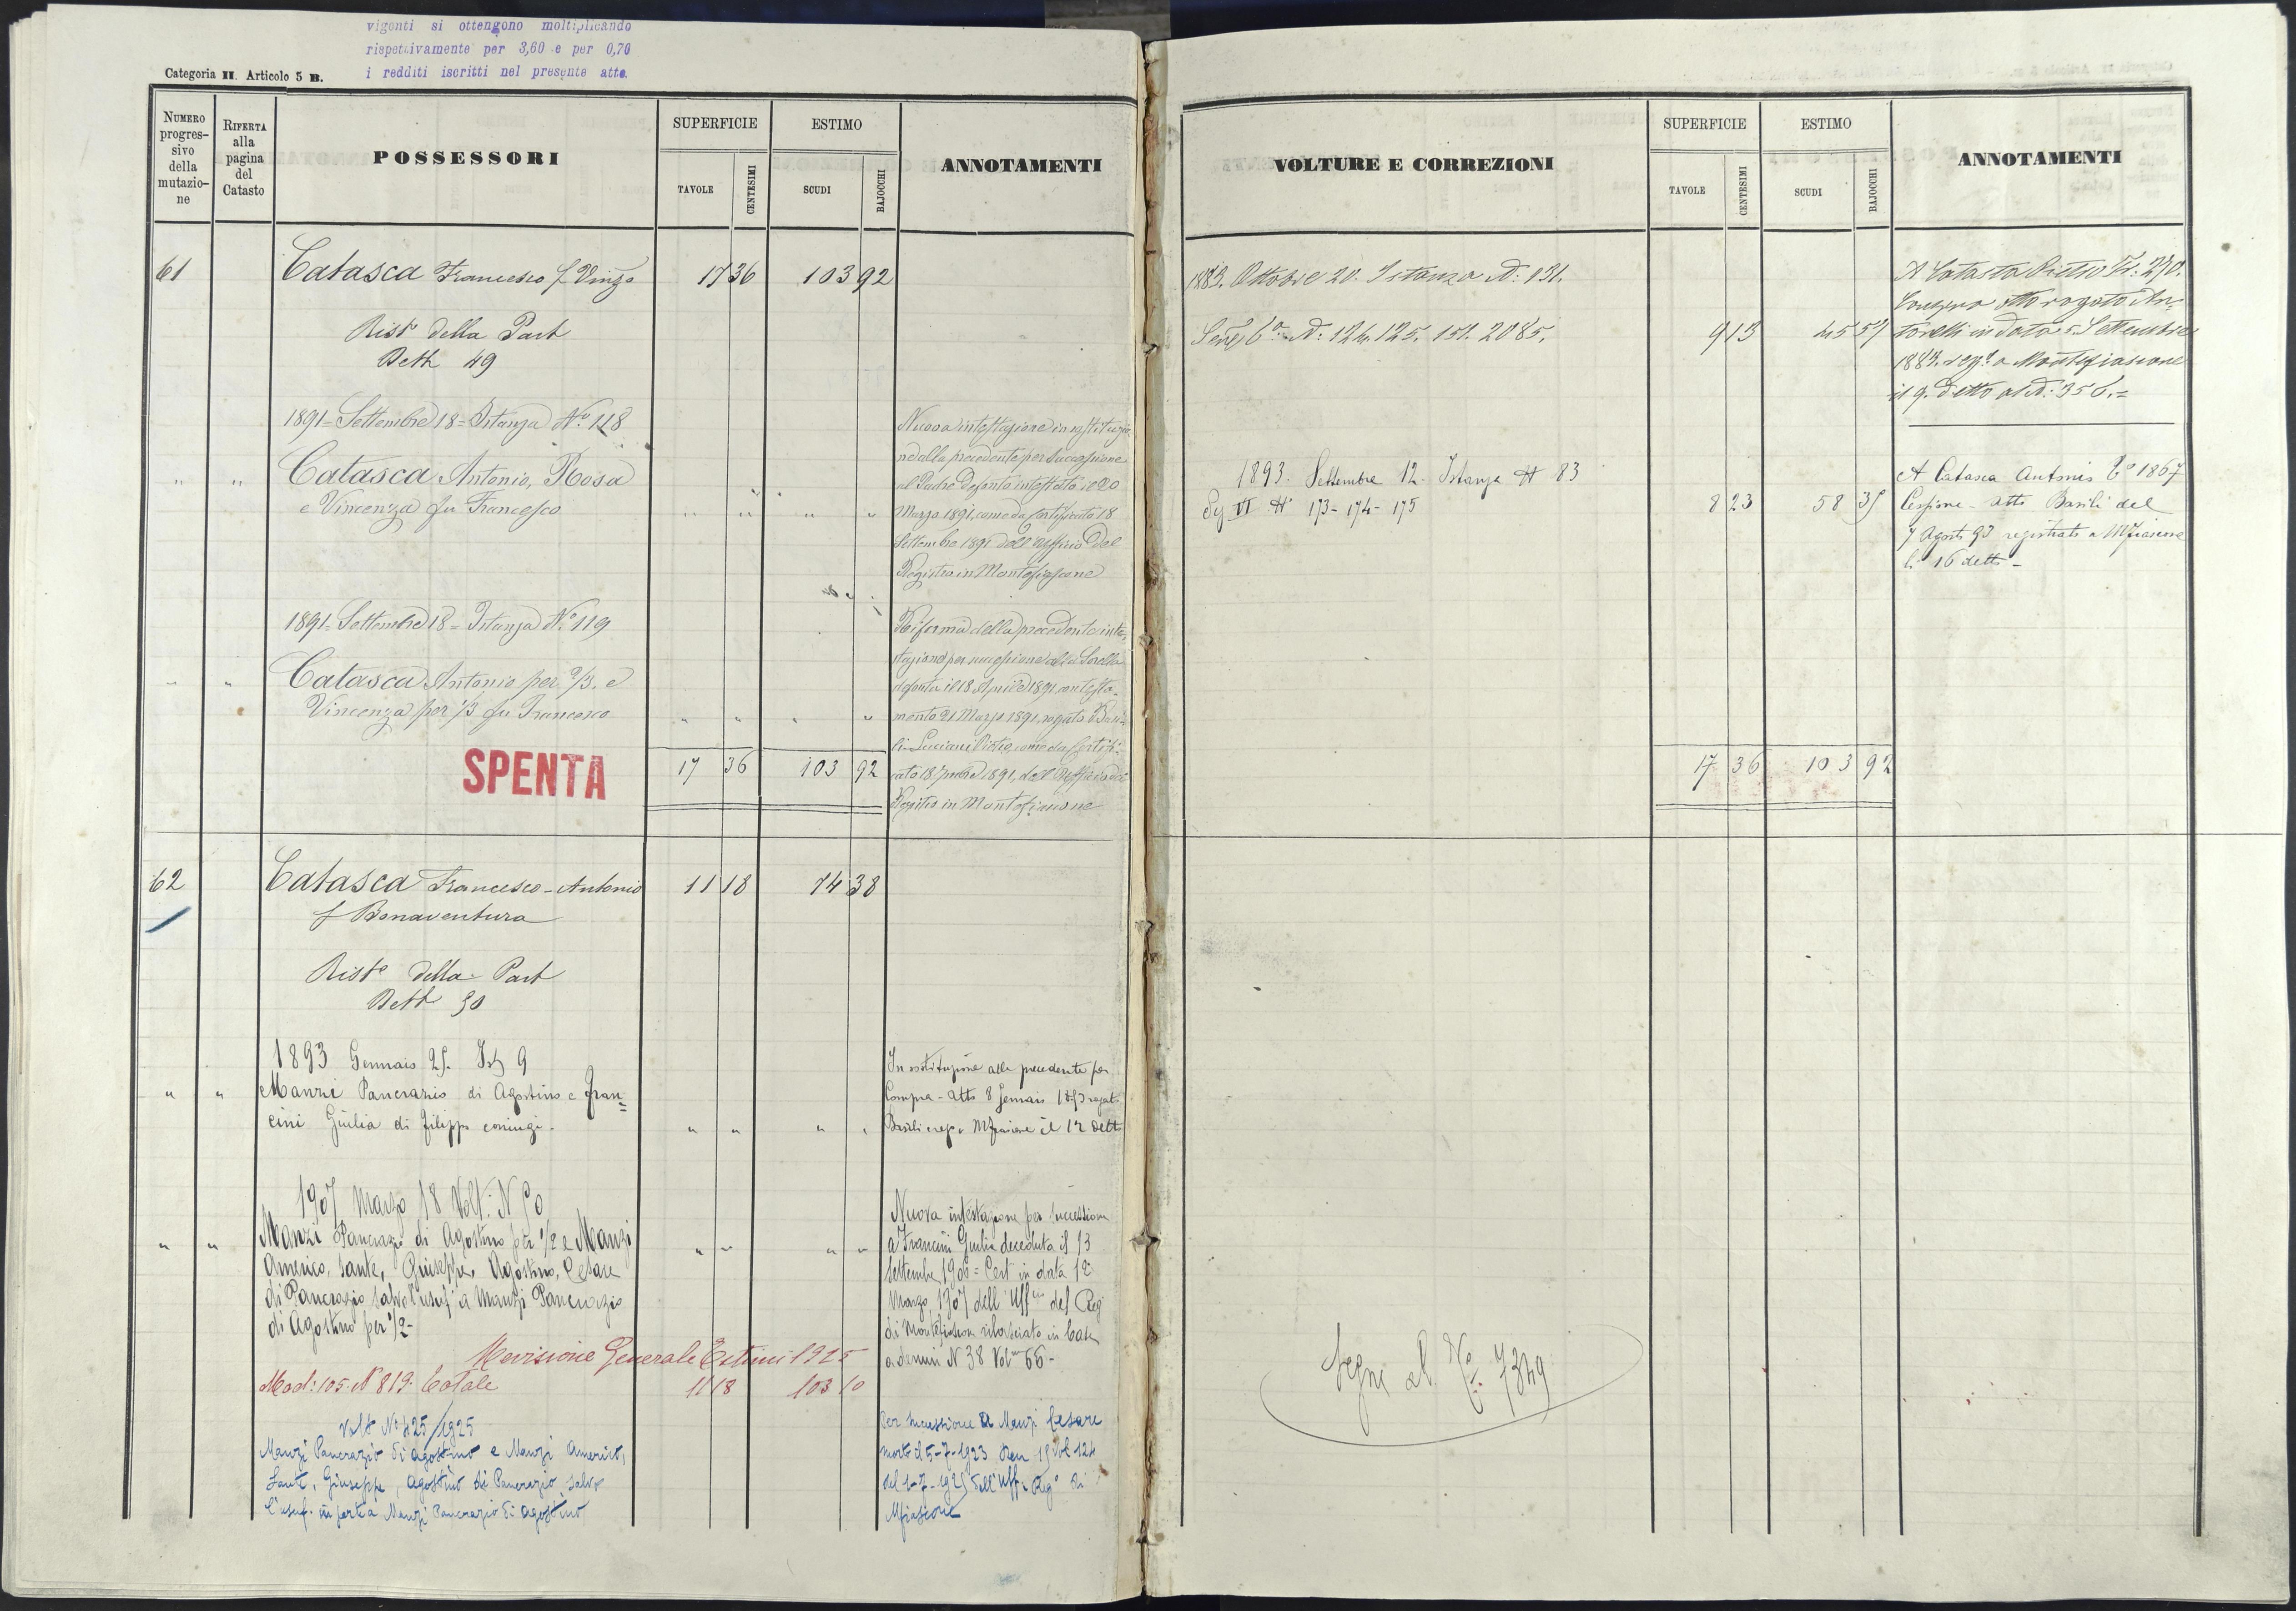 vigenti si ottengono moltiplicando
rispettivamente per 3,60 e per 0,70
i redditi iscritti nel presente atto.
Categoria II. Articolo 5 B.
NUMERO progres- sivo della mutazio- ne
RIFERTA alla pagina del Catasto
POSSESSORI
SUPERFICIE
TAVOLE
CENTESIMI
ESTIMO
SCUDI
BAJOCCHI
ANNOTAMENTI
61 Catasca Francesco f Vinzo 17 36 103 92
Rist della Part
Dett 49
1891 = Settembre 18 = Istanza N.º 118
" " Catasca Antonio, Rosa
e Vincenza fu Francesco " " " "
Nuova intestazione in sostituzio
ne alla precedente per successione
al Padre defonto intestato il 20
Marzo 1891, come da certificato 18
Settembre 1891 dell'Uffizio del
Registro in Montefiascone
1891 = Settembre 18 = Istanza N.º 119
" " Catasca Antonio per 2/3. e
Vincenza per 1/3 fu Francesco " " " "
Riforma della precedente inte-
stazione per successione alla Sorella
defonta il 18 Aprile 1891, con testa-
mento 21 Marzo 1891, rogato Basi-
li come da Certifi-
cato 18 7mbre 1891, dell'Uffizio del
Registro in Montefiascone
SPENTA
17 36 103 92
62 Catasca Francesco-Antonio 11 18 74 38
f Bonaventura
Rist della Part
Dett 50
1893 Gennaio 25. Ist 9
" " Manzi Pancrazio di Agostino e Fran=
cini Giulia di Filippo coniugi - " " " "
In sostituzione alla precedente per
Compra - Atto 8 Gennaio 1893 rogato
Basili e reg a Mfiascone il 12 detto
1907 Marzo 18 Volt: N 90
" " Manzi Pancrazio di Agostino per 1/2 e Manzi " " " "
Americo, Sante, Giuseppe, Agostino, Cesare
di Pancrazio salvo l'usuf a Manzi Pancrazio
di Agostino per 1/2 -
Nuova intestazione per successione
a Francini Giulia deceduta il 13
Settembre 1906 = Cert in data 12
Marzo 1907 dell'Uff del Reg
di Montefiascone rilasciato in base
a denun N 38 Vol 66 -
Revisione Generale Estimi 1925
Mod: 105. N 819. Totale 11 18 103 10
Volt N 425/1925
Manzi Pancrazio di Agostino e Manzi Americo,
Sante, Giuseppe, Agostino di Pancrazio, salvo
l'usuf. in parte a Manzi Pancrazio di Agostino
Per successione a Manzi Cesare
morto il 5-7-1923 Den 15 Vol 124
del 1-7-1925 dell'Uff. Reg.º di
Mfiascone
VOLTURE E CORREZIONI
SUPERFICIE
TAVOLE
CENTESIMI
ESTIMO
SCUDI
BAJOCCHI
ANNOTAMENTI
1883. Ottobre 20. Istanza N: 131.
Sez 6ª N: 124. 125. 151. 2085. 9 13 45 57
A Catasca Pietro Tº: 270.
Compra atto rogato An-
torelli in data 5 Settembre
1883. reg.º a Montefiascone
il 9. detto al N: 356. =
1893. Settembre 12. Istanza N 83
Sez VI N 173 - 174 - 175 8 23 58 35
A Catasca Antonio Tº 1867
Cessione - Atto Basili del
7 Agosto 93 registrato a Mfiascone
li 16 detto -
17 36 103 92
Segue al Nº Tº. 7349